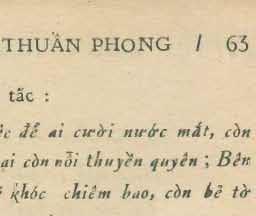 THUẦN PHONG / 63
tãc :
ệc để ai cười nước mắt, còn
ại còn nỗi thuyền quyên ; Bên
khóc chiêm bao, còn bẽ tờ